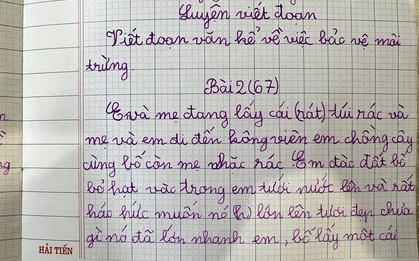 Luyện viết đoạn
Viết đoạn văn kể về việc bảo vệ môi
trừng
Bài 2 (67)
E và mẹ đang lấy cái (rát) túi rác và
mẹ và em di đến công viên em chồng cây
cùng bố còn mẹ nhăc rác. Em đàc đất bố
bỏ hạt vàc trong em tưới nước lên và rất
háo hức muốn nó h) lớn lên tươi đẹp chưa
gì nó đã lớn nhanh em, bố lấy một cái
HẢI TIẾN